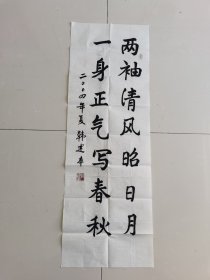 两袖清风昭日月
一身正气写春秋
二〇〇四年夏 韩建章